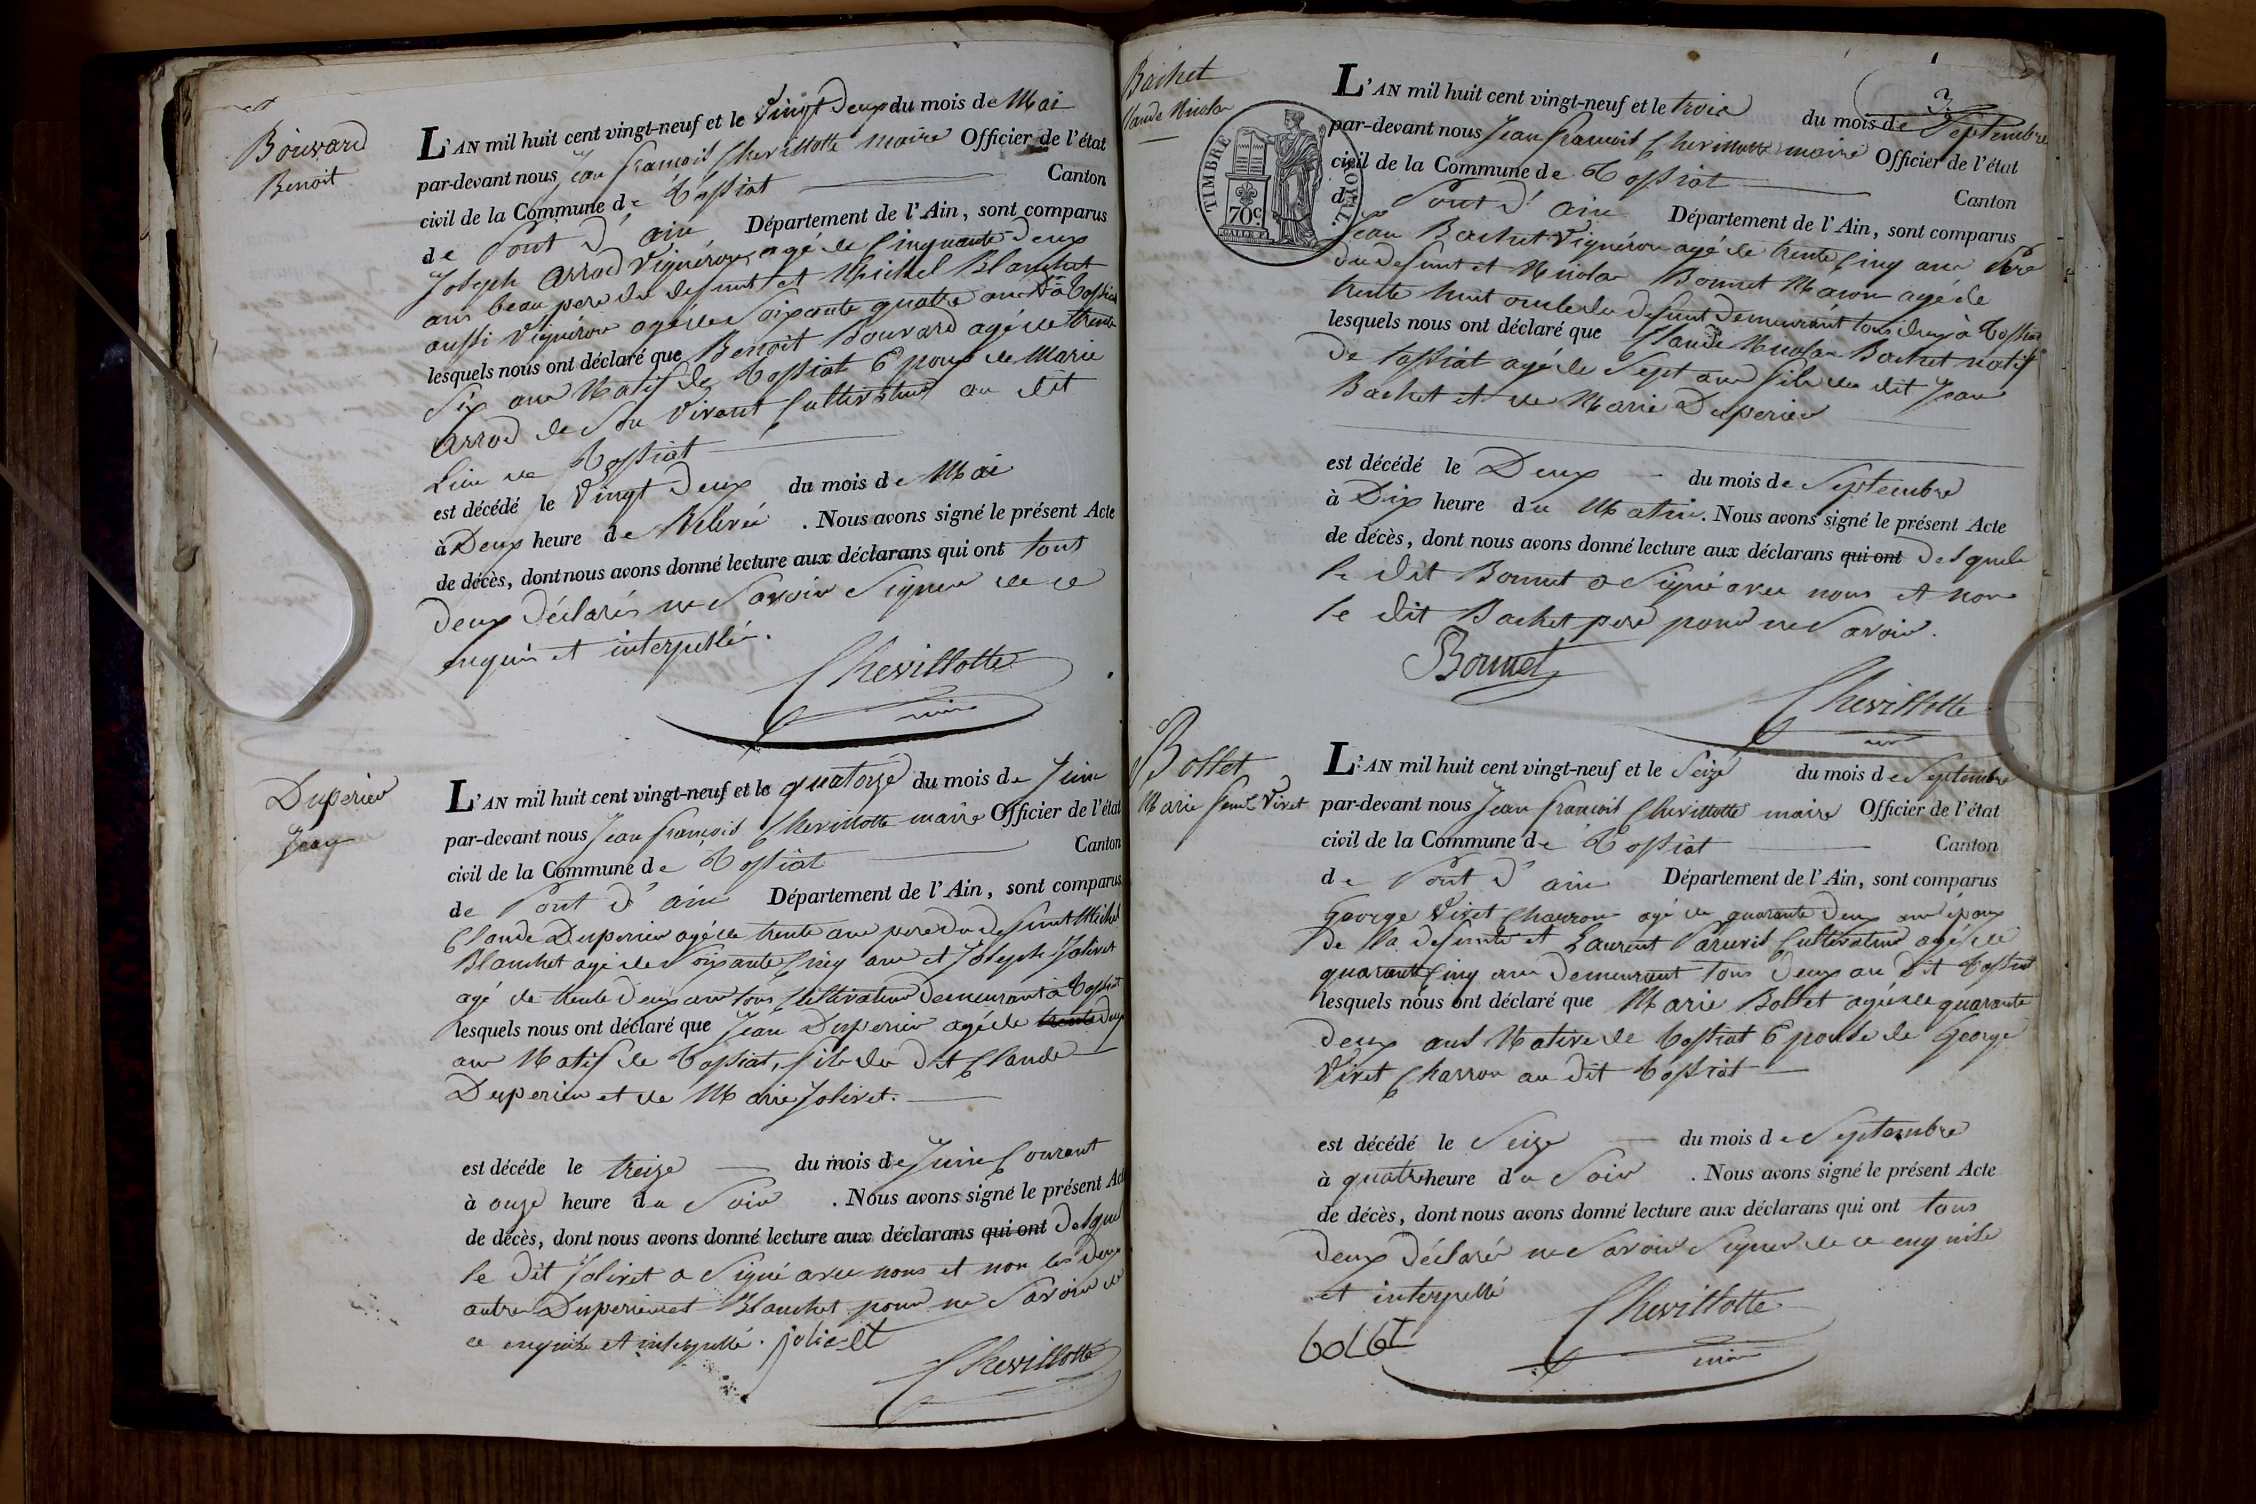 Bouvard
Benoit
L'AN mil huit cent vingt-neuf et le Vingt Deux du mois de Mai
par-devant nous Jean françois Chevillotte maire Officier de l'état
civil de la Commune de Tossiat Canton
de Pont d'ain Département de l'Ain, sont comparus
Joseph Arrod Vignéron agé de Cinquante Deux
ans beau pere du defunt et Michel Blanchet
aussi Vignéron agé de Soixante quatre ans à Tossiat
lesquels nous ont déclaré que Benoit Bouvard agé de trente
Six ans Natif de Tossiat Epoux de Marie
Arrod de Son Vivant Cultivateur au dit
Lieu de Tossiat
est décédé le Vingt Deux du mois de Mai
à Deux heure de Relevée . Nous avons signé le présent Acte
de décès, dont nous avons donné lecture aux déclarans qui ont tout
Deux Déclarés ne Savoir Signer de ce
enquis et interpellés.
Chevillotte
maire
Duperier
Jean
L'AN mil huit cent vingt-neuf et le quatorze du mois de Juin
par-devant nous Jean françois Chevillotte maire Officier de l'état
civil de la Commune de Tossiat Canton
de Pont d'ain Département de l'Ain, sont comparus
Claude Duperier agé de trente ans pere du defunt Michel
Blanchet agé de Soixante Cinq ans et Joseph Jolivet
agé de trente Deux ans tous Cultivateur Demeurant à Tossiat
lesquels nous ont déclaré que Jean Duperier agé de trente Deux
ans Natif de Tossiat, fils du Dit Claude
Duperier et de Marie Jolivet.
est décédé le treize du mois de Juin Courant
à onze heure du Soir . Nous avons signé le présent Acte
de décès, dont nous avons donné lecture aux déclarans qui ont Desquel
le Dit Jolivet a Signé avec nous et non les Deux
autres Duperier et Blanchet pour ne Savoir de
ce enquis et interpellé. jolivet
Chevillotte
Bachet
Claude Nicolas
TIMBRE ROYAL
70c
L'AN mil huit cent vingt-neuf et le trois du mois de Septembre
par-devant nous Jean françois Chevillotte maire Officier de l'état
civil de la Commune de Tossiat Canton
d Pont d'ain Département de l'Ain, sont comparus
Jean Bachet Vignéron agé de trente Cinq ans Père
du defunt et Nicolas Bonnet Maçon agé de
trente huit oncle du defunt Demeurant tous deux à Tossiat
lesquels nous ont déclaré que Claude Nicolas Bachet natif
de tossiat agé de Sept ans fils du dit Jean
Bachet et de Marie Duperier
est décédé le Deux du mois de Septembre
à Dix heure du Matin. Nous avons signé le présent Acte
de décès, dont nous avons donné lecture aux déclarans qui ont Desquels
le dit Bonnet a Signé avec nous et non
le dit Bachet pere pour ne Savoir.
Bonnet
Chevillotte
Bollet
Marie feme Vivet
L'AN mil huit cent vingt-neuf et le Seize du mois de Septembre
par-devant nous Jean françois Chevillotte maire Officier de l'état
civil de la Commune de Tossiat Canton
de Pont d'ain Département de l'Ain, sont comparus
George Vivet Charron agé de quarante Deux ans époux
de la defunte et Laurent Cultivateur agé de
quarante Cinq ans Demeurant tous Deux au Dit Tossiat
lesquels nous ont déclaré que Marie Bollet agée de quarante
Deux ans Native de Tossiat Epouse de George
Vivet Charron au Dit Tossiat
est décédé le Seize du mois de Septembre
à quatre heure du Soir . Nous avons signé le présent Acte
de décès, dont nous avons donné lecture aux déclarans qui ont tous
Deux Déclaré ne Savoir Signer de ce enquise
et interpellé
Chevillotte
maire